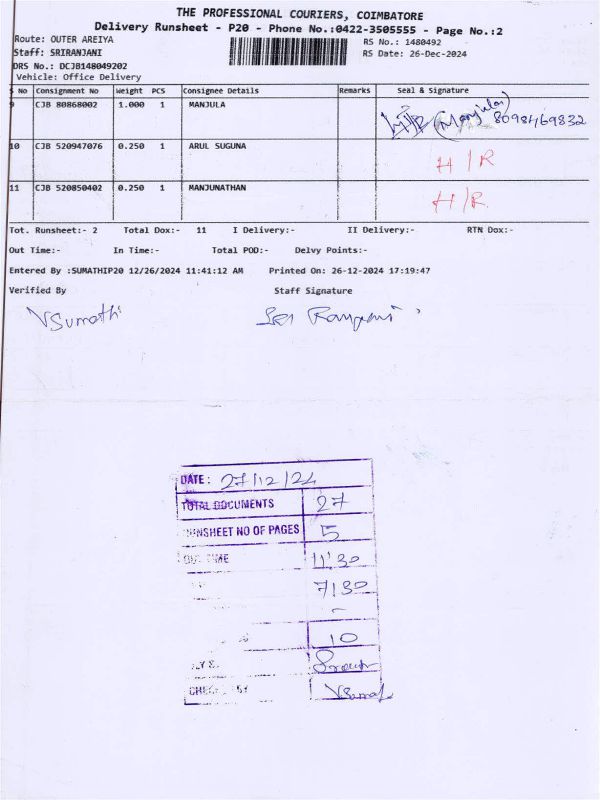 THE PROFESSIONAL COURIERS, COIMBATORE
Delivery Runsheet - P20 - Phone No.:0422-3505555 - Page No.:2
Route: OUTER AREIYA RS No.: 1480492
Staff: SRIRANJANI RS Date: 26-Dec-2024
DRS No.: DCJB148049202
Vehicle: Office Delivery
S No Consignment No Weight PCS Consignee Details Remarks Seal & Signature
9 CJB 80868002 1.000 1 MANJULA (Manjula) 8098469832
10 CJB 520947076 0.250 1 ARUL SUGUNA H/R
11 CJB 520850402 0.250 1 MANJUNATHAN H/R
Tot. Runsheet:- 2 Total Dox:- 11 I Delivery:- II Delivery:- RTN Dox:-
Out Time:- In Time:- Total POD:- Delvy Points:-
Entered By :SUMATHIP20 12/26/2024 11:41:12 AM Printed On: 26-12-2024 17:19:47
Verified By Staff Signature
VSumathi Sri Ranjani
DATE: 27/12/24
TOTAL DOCUMENTS 27
RUNSHEET NO OF PAGES 5
OUT TIME 11:30
7:30
-
10
CHECK BY VSumathi